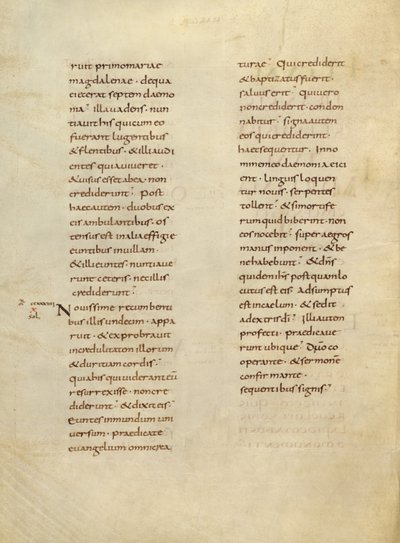 ruit primo mariae
magdalenae · de qua
eiecerat septem daemo
nia · illa vadens · nun
tiavit his qui cum eo
fuerant lugentibus
& flentibus · & illi audi
entes quia viveret ·
& visus esset ab ea · non
crediderunt · Post
haec autem · duobus ex
eis ambulantibus · os
tensus est in alia effigie
euntibus in villam ·
& illi euntes · nuntiave
runt ceteris · nec illis
crediderunt ·
Novissime recumbenti
bus illis undecim · appa
ruit · & exprobravit
incredulitatem illorum
& duritiam cordis ·
quia his qui viderant eū
resurrexisse · non cre
diderunt · & dixit eis ·
Euntes in mundum uni
versum · praedicate
evangelium omni crea
turae · Qui crediderit
& baptizatus fuerit ·
salvus erit · qui vero
non crediderit · condem
nabitur · signa autem
eos qui crediderint ·
haec sequentur · In no
mine meo daemonia eici
ent · linguis loquen
tur novis · serpentes
tollent · & si mortife
rum quid biberint · non
eos nocebit · super aegros
manus inponent · & be
ne habebunt · & dn̄s
quidem ihs postquam lo
cutus est eis · adsumptus
est in caelum · & sedit
a dextris dī · Illi autem
profecti · praedicave
runt ubique · Dn̄o co
operante · & sermonem
confirmante ·
sequentibus signis ·